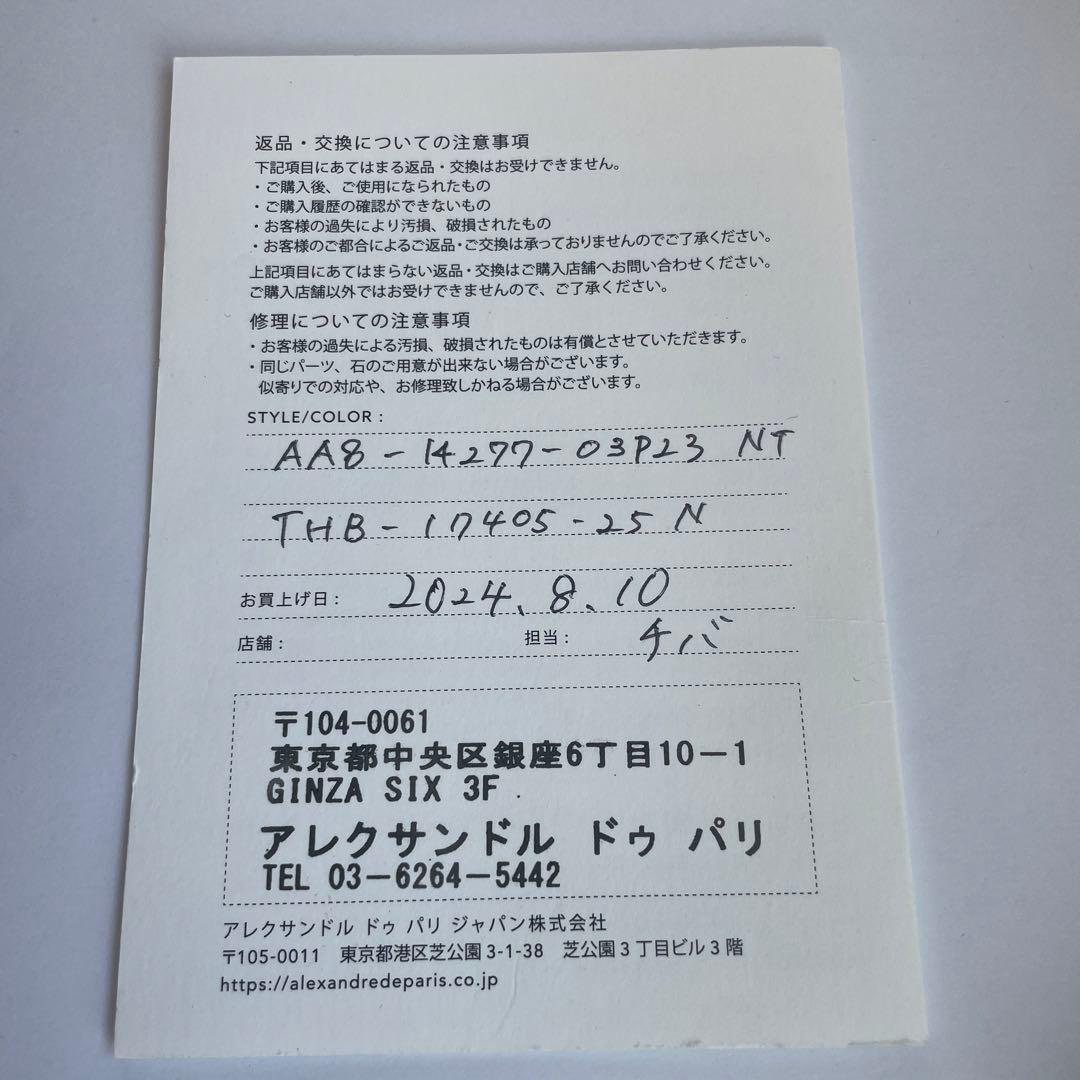 返品・交換についての注意事項
下記項目にあてはまる返品・交換はお受けできません。
・ご購入後、ご使用になられたもの
・ご購入履歴の確認ができないもの
・お客様の過失により汚損、破損されたもの
・お客様のご都合によるご返品・ご交換は承っておりませんのでご了承ください。
上記項目にあてはまらない返品・交換はご購入店舗へお問い合わせください。
ご購入店舗以外ではお受けできませんので、ご了承ください。
修理についての注意事項
・お客様の過失による汚損、破損されたものは有償とさせていただきます。
・同じパーツ、石のご用意が出来ない場合がございます。
似寄りでの対応や、お修理致しかねる場合がございます。
STYLE/COLOR :
AA8-14277-03P23 NT
THB-17405-25 N
お買上げ日 : 2024.8.10
店舗 : 担当 : チバ
〒104-0061
東京都中央区銀座6丁目10-1
GINZA SIX 3F
アレクサンドル ドゥ パリ
TEL 03-6264-5442
アレクサンドル ドゥ パリ ジャパン株式会社
〒105-0011 東京都港区芝公園3-1-38 芝公園3丁目ビル3階
https://alexandredeparis.co.jp